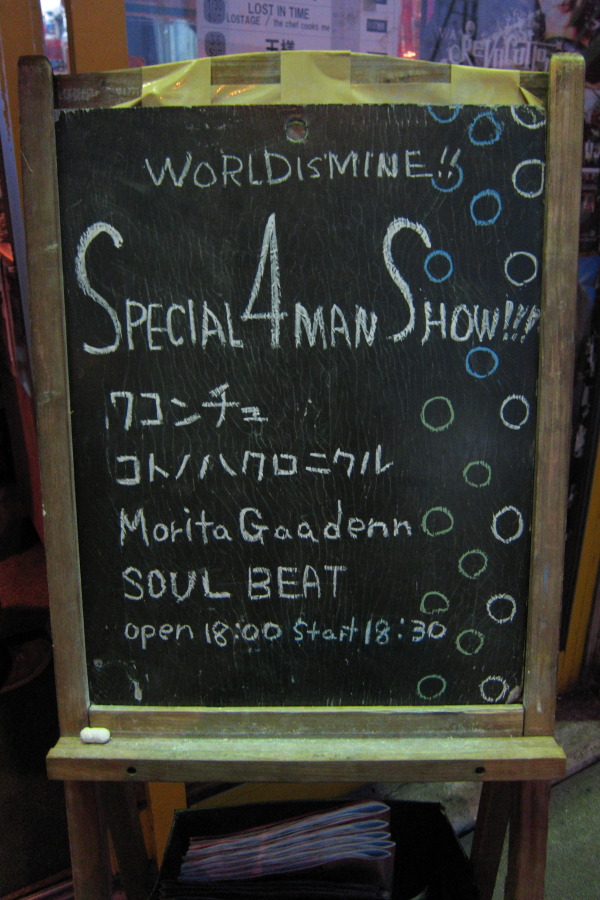 LOST IN TIME
LOSTAGE / the chef cooks me
王様
WORLDiSMINE!!
SPECIAL 4 MAN SHOW!!!
ワコンチェ
コトノハクロニクル
MoritaGaadenn
SOUL BEAT
open 18:00 Start 18:30